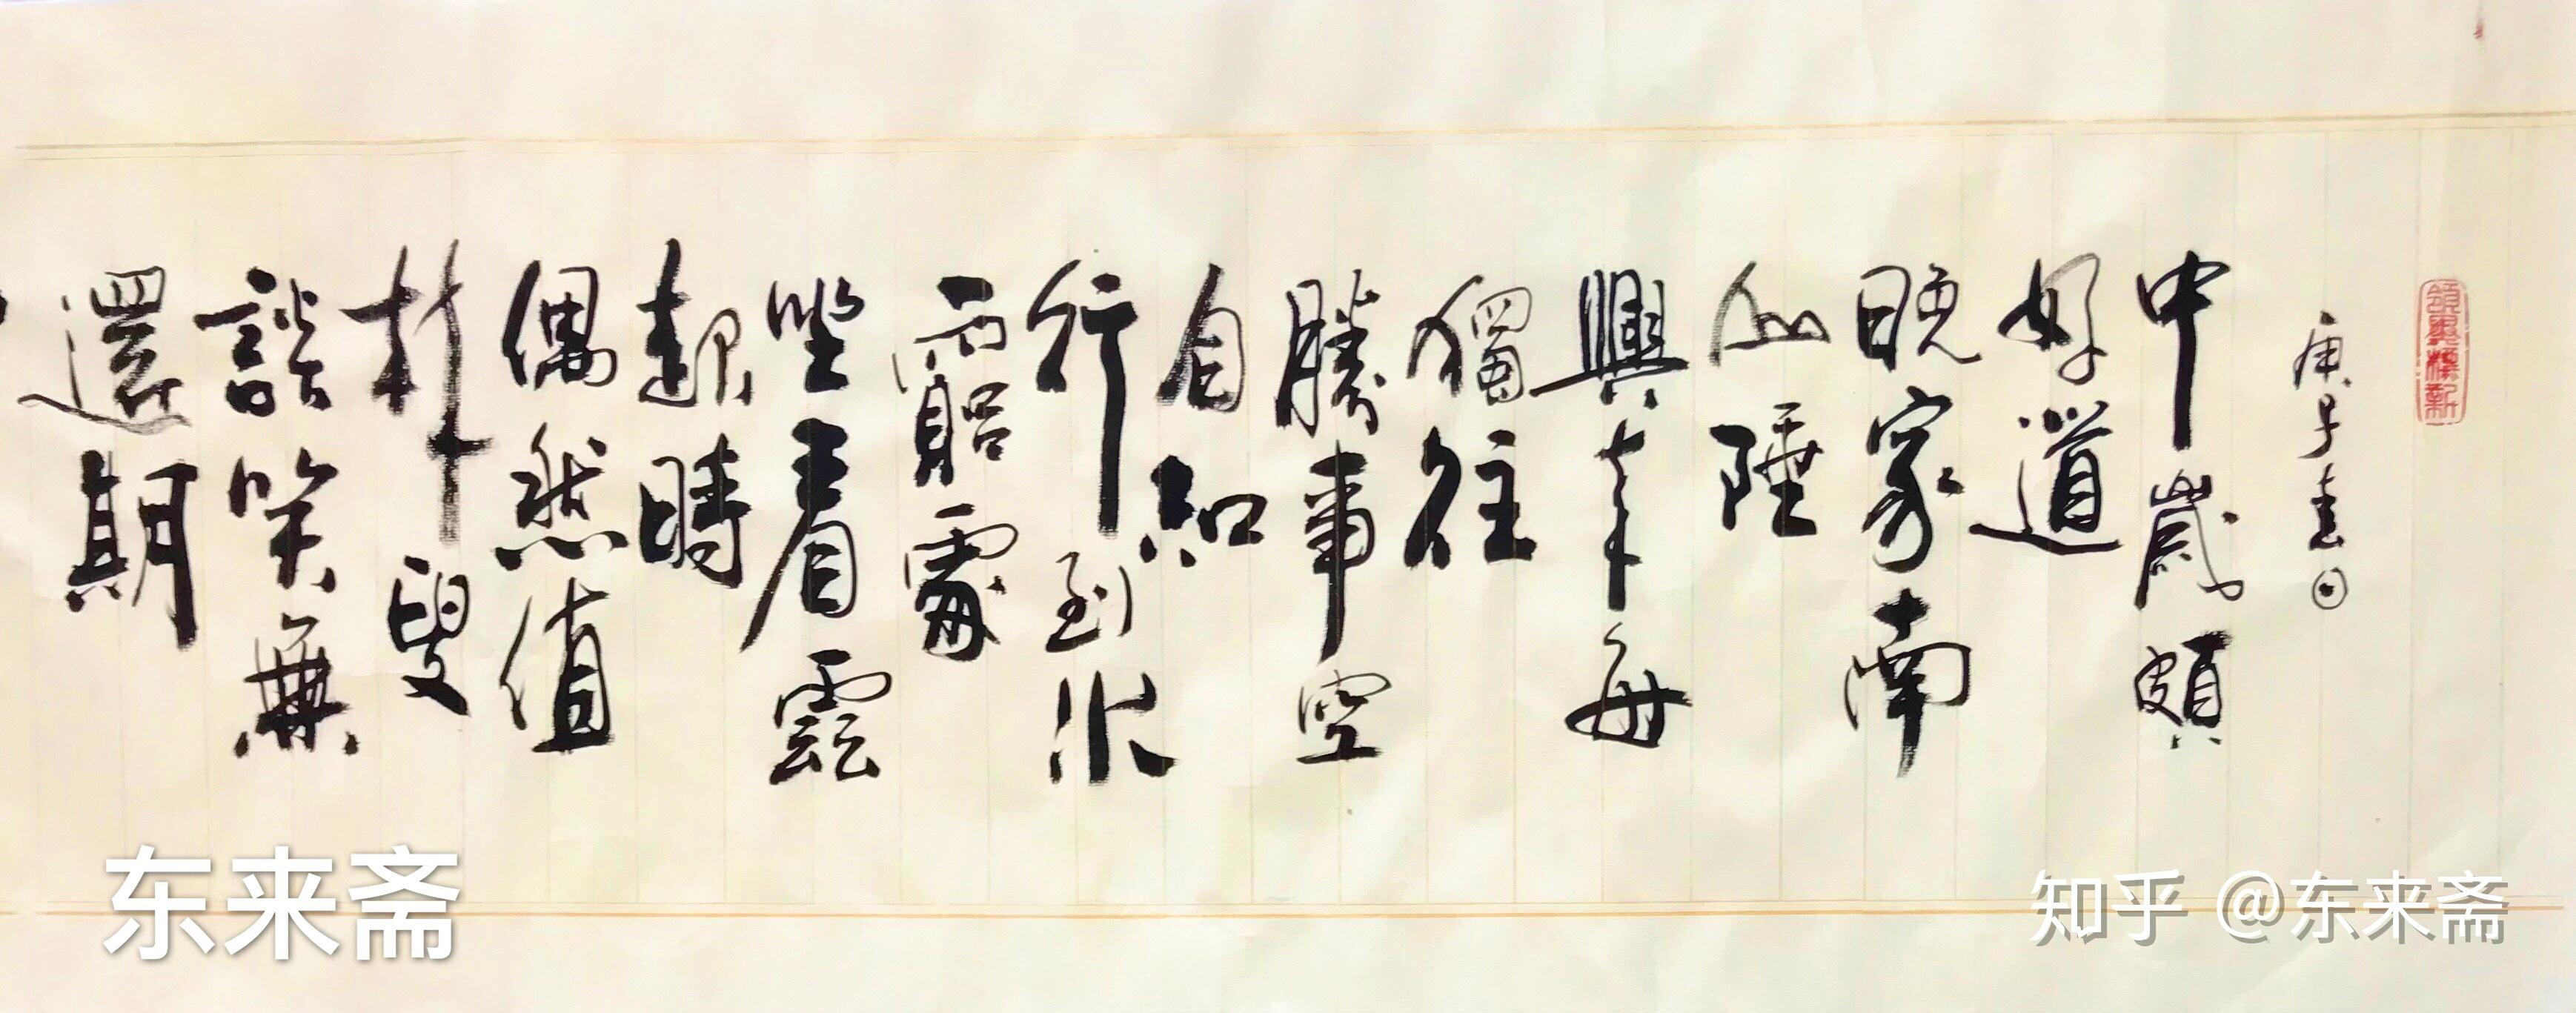 領異標新
庚子春日
中歲頗
好道
晚家南
山陲
興來每
獨往
勝事空
自知
行到水
窮處
坐看雲
起時
偶然值
林叟
談笑無
還期
东来斋
知乎 @东来斋